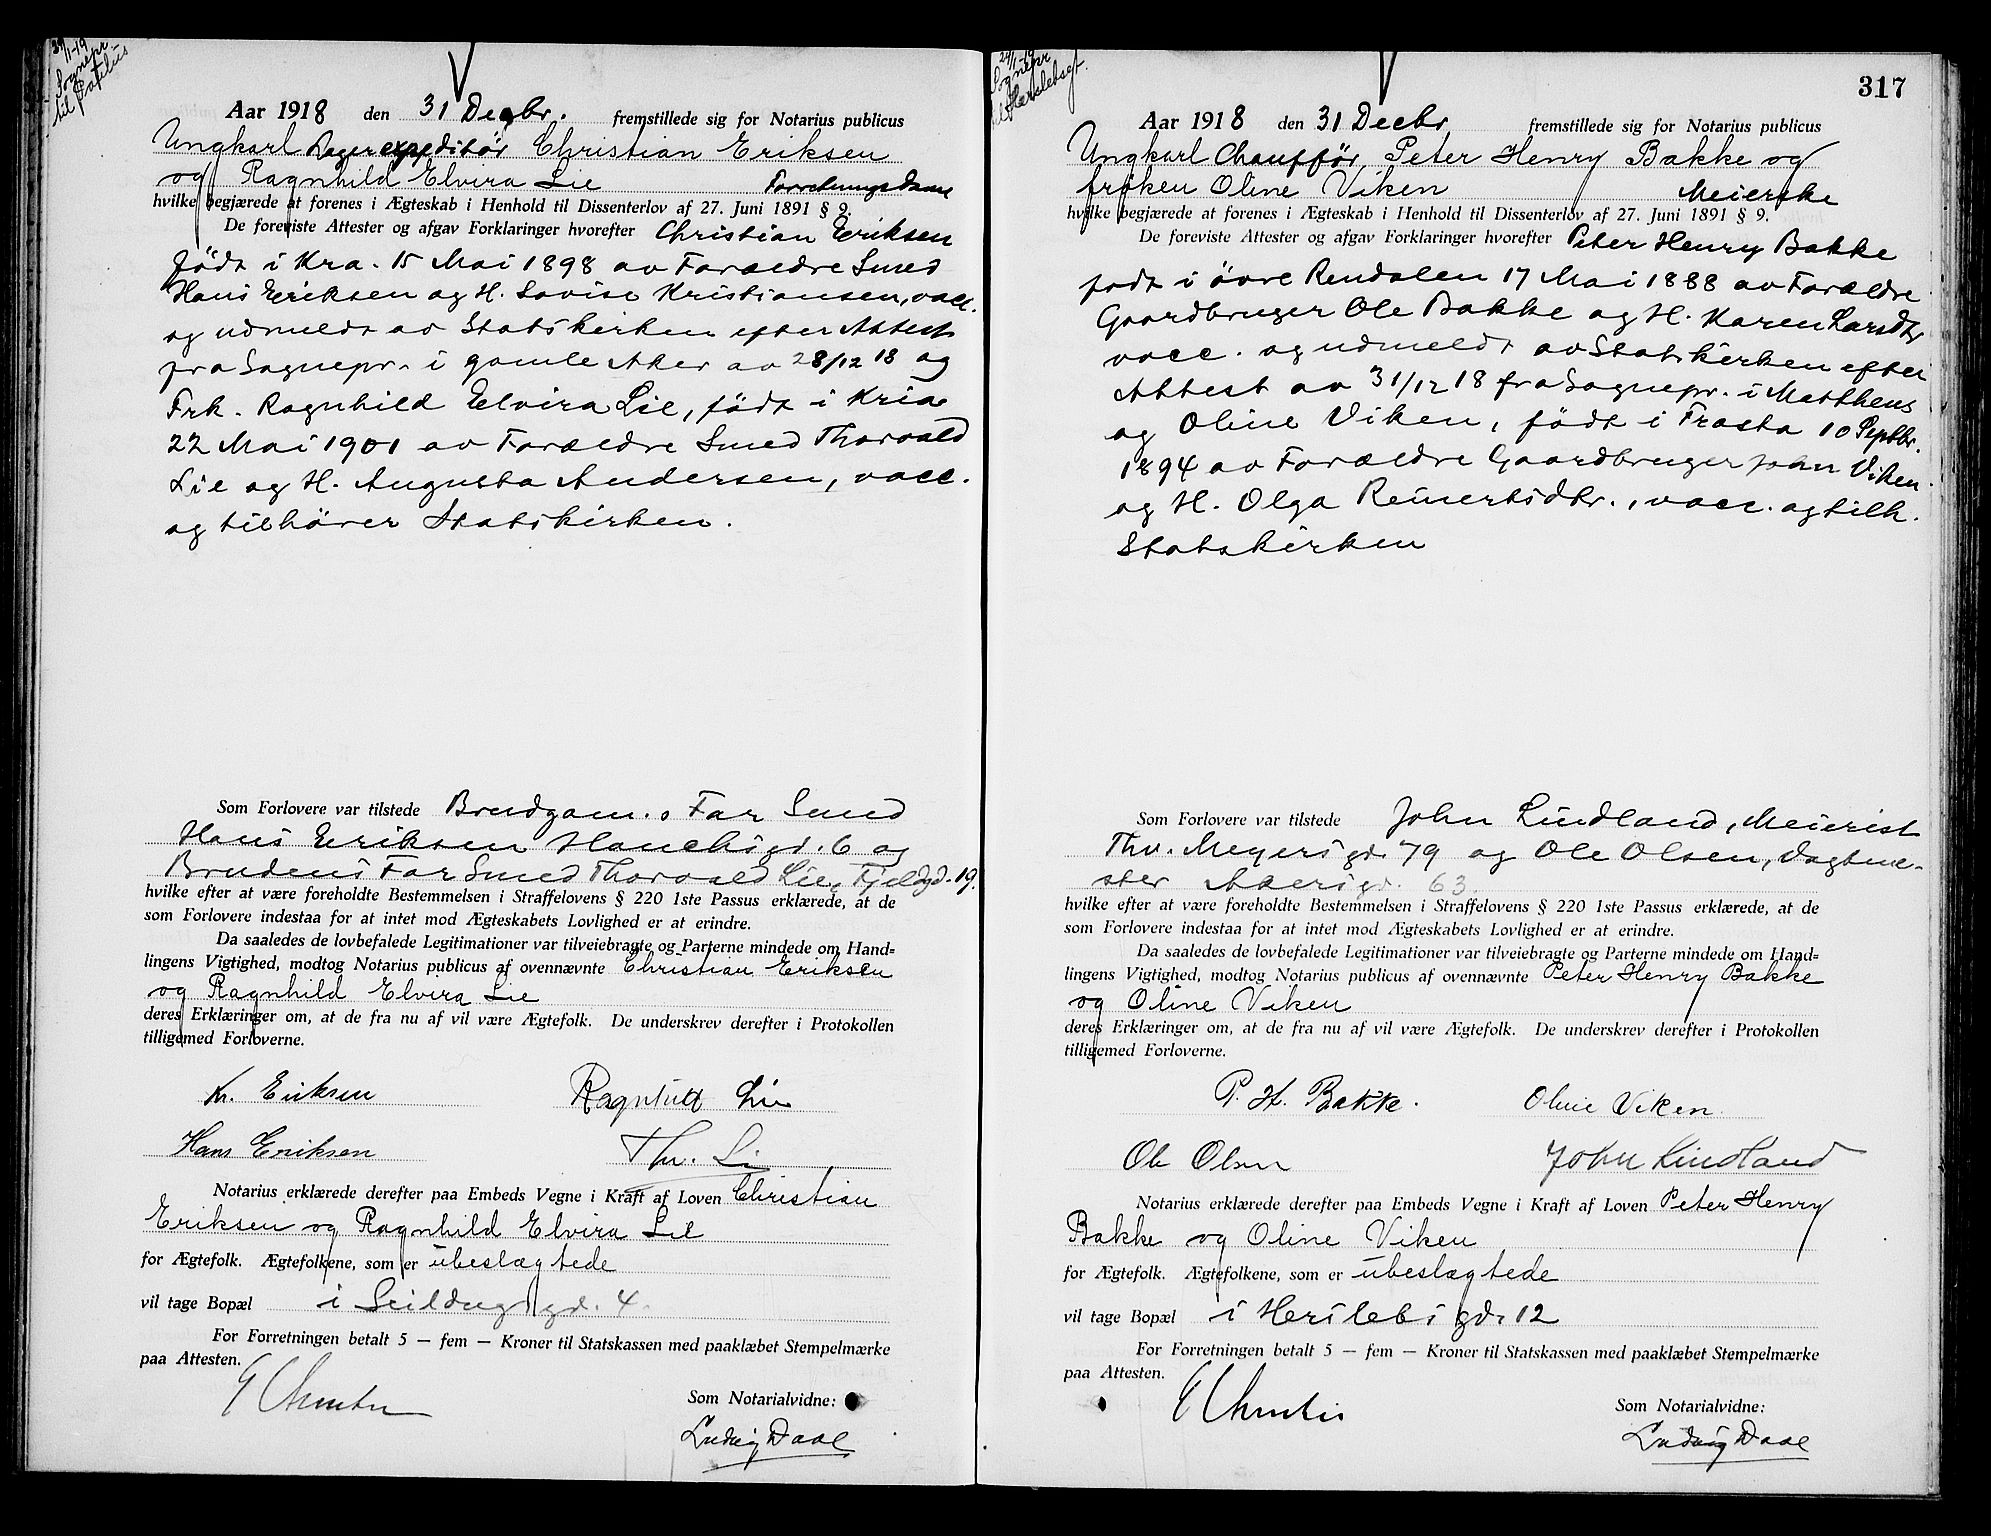 31/1-19
Sognepr.
til Paulus
Aar 1918 den 31 Decbr. fremstillede sig for Notarius publicus
Ungkarl Lagerexpeditör Christian Eriksen
og Ragnhild Elvira Lie Forretningsdame
hvilke begjærede at forenes i Ægteskab i Henhold til Dissenterlov af 27. Juni 1891 § 9.
De foreviste Attester og afgav Forklaringer hvorefter Christian Eriksen
födt i Kra. 15 Mai 1898 av Forældre Smed
Hans Eriksen og H. Lovise Kristiansen, vacc.
og udmeldt av Statskirken efter Attest
fra Sognepr. i gamle Aker av 28/12 18 og
Frk. Ragnhild Elvira Lie, födt i Kria
22 Mai 1901 av Forældre Smed Thorvald
Lie og H. Augusta Andersen, vacc.
og tilhörer Statskirken.
Som Forlovere var tilstede Brudgom.s Far Smed
Hans Eriksen Hauchsgd. 6 og
Brudens Far Smed Thorvald Lie, Fjeldgd. 19.
hvilke efter at være foreholdte Bestemmelsen i Straffelovens § 220 1ste Passus erklærede, at de
som Forlovere indestaa for at intet mod Ægteskabets Lovlighed er at erindre.
Da saaledes de lovbefalede Legitimationer var tilveiebragte og Parterne mindede om Hand-
lingens Vigtighed, modtog Notarius publicus af ovennævnte Christian Eriksen
og Ragnhild Elvira Lie
deres Erklæringer om, at de fra nu af vil være Ægtefolk. De underskrev derefter i Protokollen
tilligemed Forloverne.
Kr. Eriksen Ragnhild Lie
Hans Eriksen Thv. Lie
Notarius erklærede derefter paa Embeds Vegne i Kraft af Loven Christian
Eriksen og Ragnhild Elvira Lie
for Ægtefolk. Ægtefolkene, som er ubeslægtede
vil tage Bopæl i Seildugsgd. 4.
For Forretningen betalt 5 — fem — Kroner til Statskassen med paaklæbet Stempelmærke
paa Attesten.
Som Notarialvidne:
Ludvig Daae
317
Sognepr
Aar 1918 den 31 Decbr fremstillede sig for Notarius publicus
Ungkarl Chaufför, Peter Henry Bakke og
fröken Oline Viken Meierske
hvilke begjærede at forenes i Ægteskab i Henhold til Dissenterlov af 27. Juni 1891 § 9.
De foreviste Attester og afgav Forklaringer hvorefter Peter Henry Bakke
födt i övre Rendalen 17 Mai 1888 av Forældre
Gaardbruger Ole Bakke og H. Karen Larsdtr
vacc. og udmeldt av Statskirken efter
Attest av 31/12 18 fra Sognepr. i Matthæus
og Oline Viken, födt i Frosta 10 Septbr.
1894 av Forældre Gaardbruger John Viken
og H. Olga Reinertsdtr., vacc. og tilh.
Statskirken
Som Forlovere var tilstede John Lindland, Meierist
Thv. Meyersgd. 79 og Ole Olsen, Vagtme-
ster Akersgd. 63.
hvilke efter at være foreholdte Bestemmelsen i Straffelovens § 220 1ste Passus erklærede, at de
som Forlovere indestaa for at intet mod Ægteskabets Lovlighed er at erindre.
Da saaledes de lovbefalede Legitimationer var tilveiebragte og Parterne mindede om Hand-
lingens Vigtighed, modtog Notarius publicus af ovennævnte Peter Henry Bakke
og Oline Viken
deres Erklæringer om, at de fra nu af vil være Ægtefolk. De underskrev derefter i Protokollen
tilligemed Forloverne.
P. H. Bakke. Oline Viken.
Ole Olsen John Lindland
Notarius erklærede derefter paa Embeds Vegne i Kraft af Loven Peter Henry
Bakke og Oline Viken
for Ægtefolk. Ægtefolkene, som er ubeslægtede
vil tage Bopæl i Herslebs gd. 12
For Forretningen betalt 5 — fem — Kroner til Statskassen med paaklæbet Stempelmærke
paa Attesten.
Som Notarialvidne:
Ludvig Daae